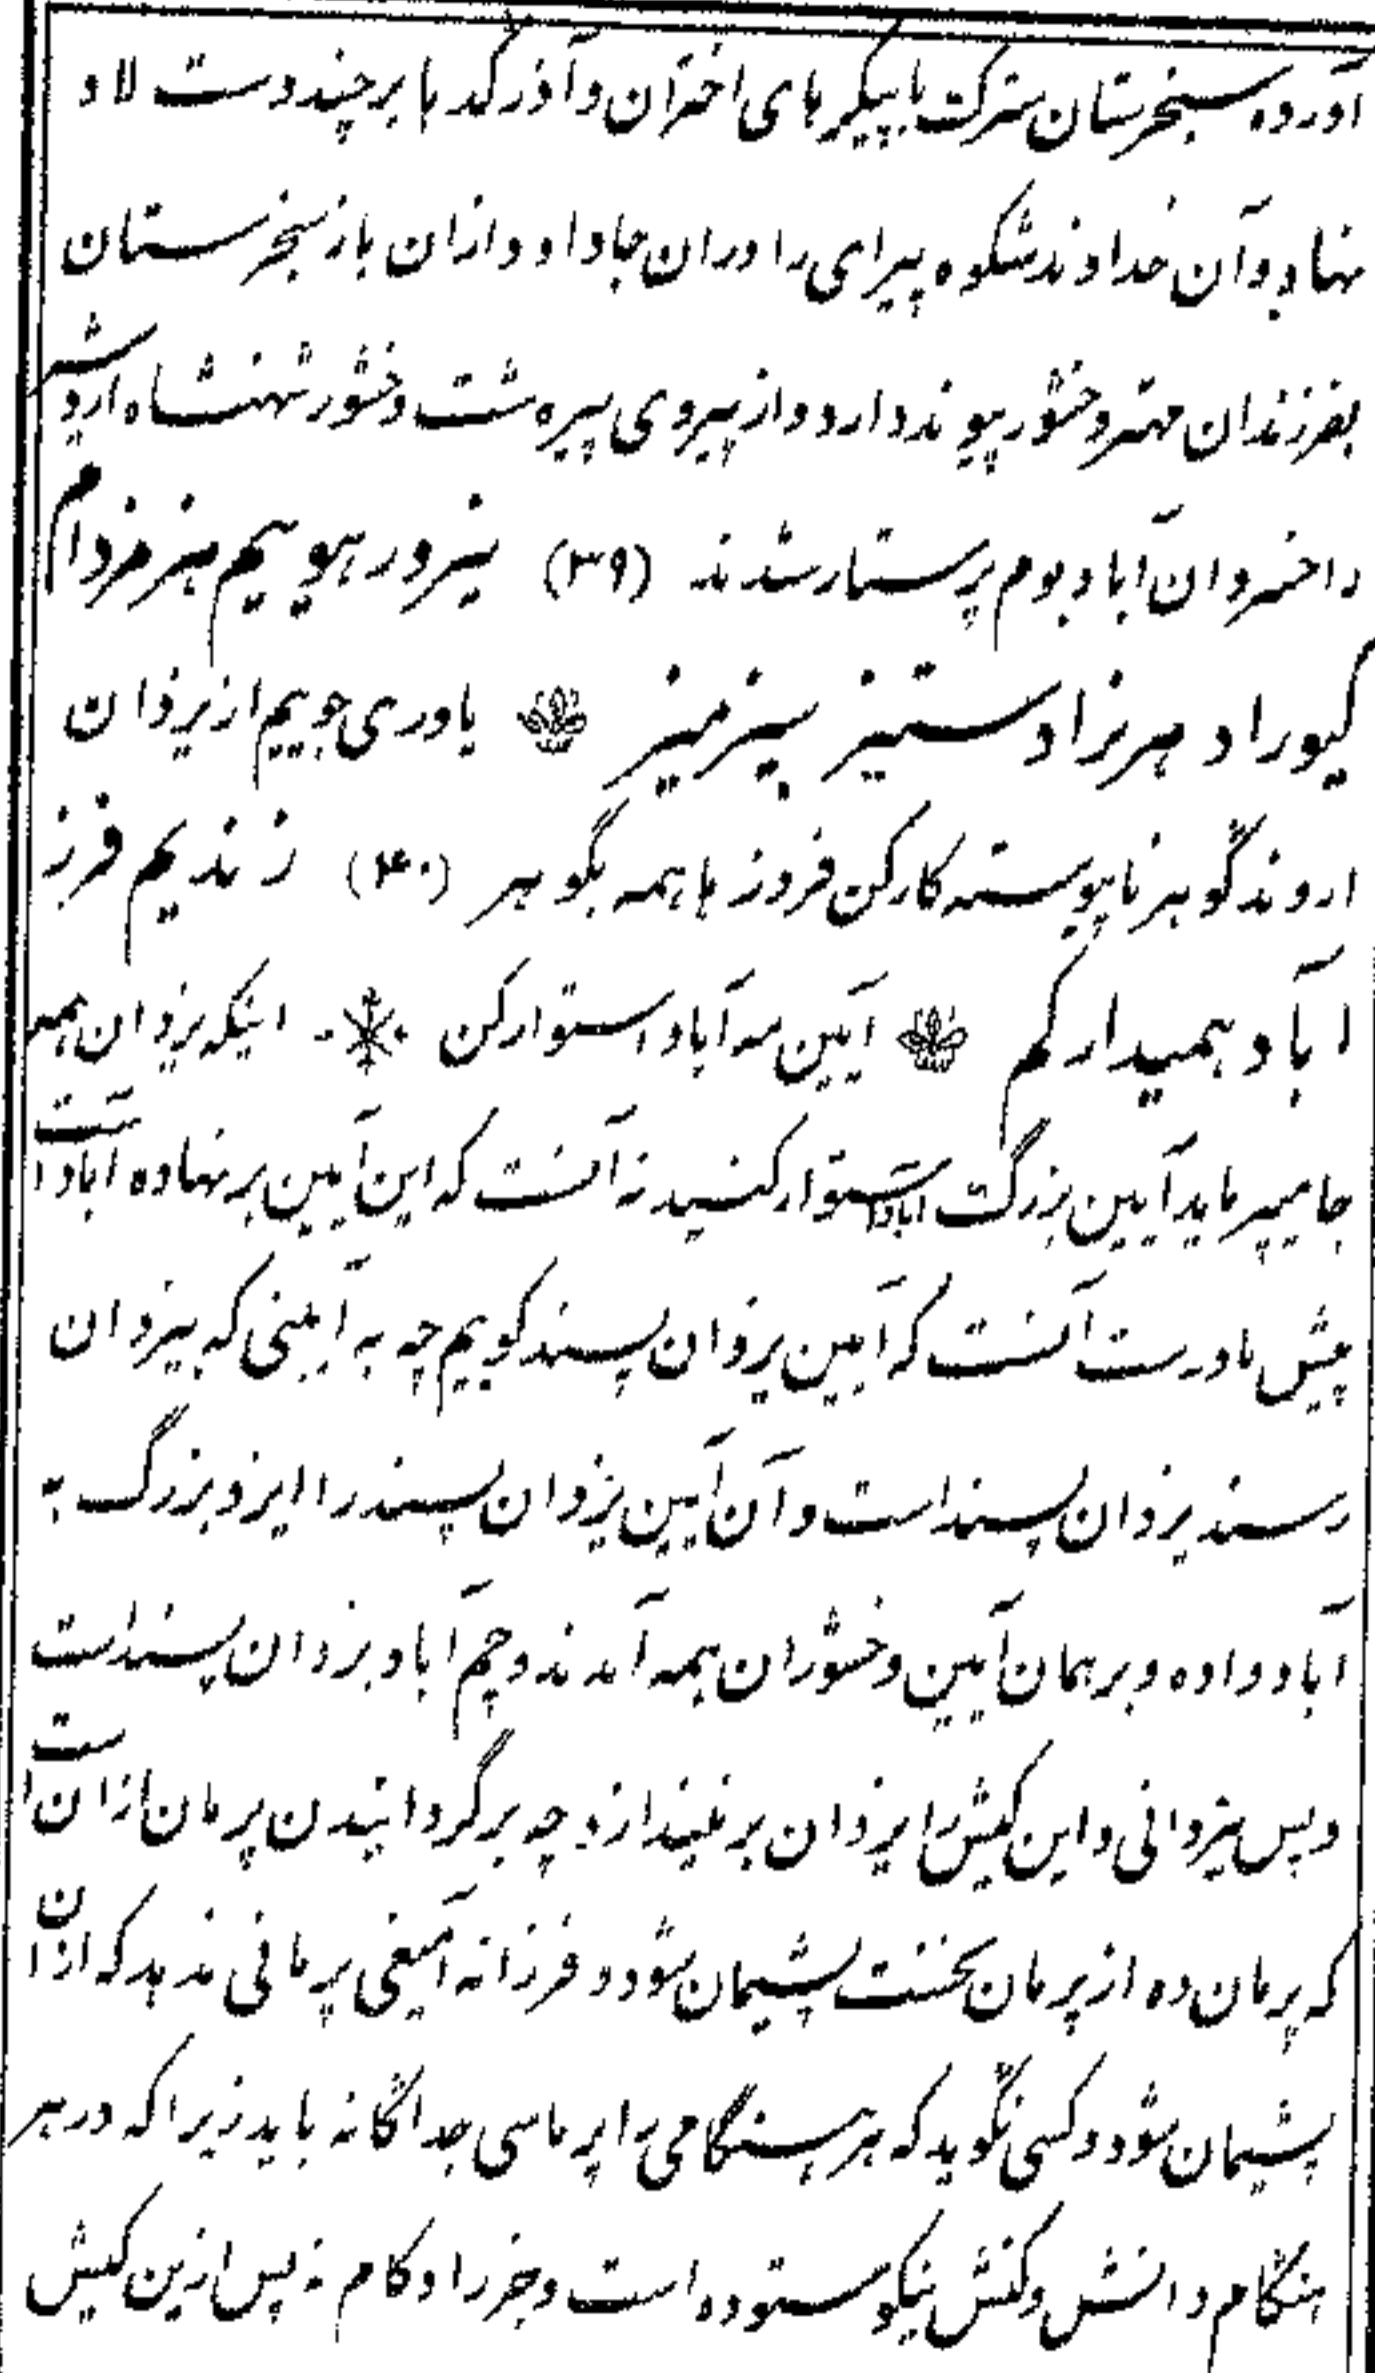 آورده سنجرستان سترک با پیکرهای اختران و آذرکدها بر چند دست لاد
نهاد و آن خداوند شکوه پیرای را دران جا داد و ازان باز سنجرستان
بفرزندان مهتر وخشور پیوند دارد و از پیروی پیره شت وخشور شهنشاه اردشیر
را خسروان آباد بوم پرستار شدند (۳۹) نیرور هیوییم هنر مزدام
کیوراد هرنزاد ستیز پنرمیز یاوری جوییم از یزدان
اروند گوهر ناپیوسته کارکن فروزها همه بگوهر (۴۰) زندیم فرز
آباد همیدارکم آیین مه آباد استوار کن اینکه یزدان همه
جا میپرماید آیین بزرگ آباد استوار کنید نه آنست که این آیین بر نهاده آباد است
پیش ما درست آنست که آیین یزدان پسند گوییم چه به آیینی که بیزدان
رسند یزدان پسند است و آن آیین یزدان پسند را ایزد بزرگ به
آباد داده و بر همان آیین وخشوران همه آمدند و چم آباد یزدان پسند است
و بس یزدانی و این کیش را یزدان بر نیندازد چه برگردانیدن پرمان ازان است
که پرمان ده از پرمان نخست پشیمان شود و فرزانه آمیغی پرمانی ندهد که ازان
پشیمان شود و کسی نگوید که هر هنگامی را پرماسی جداگانه باید زیرا که در هر
هنگام دانش و کنش نیکو ستوده است و جز را دکام نه پس ازین کیش